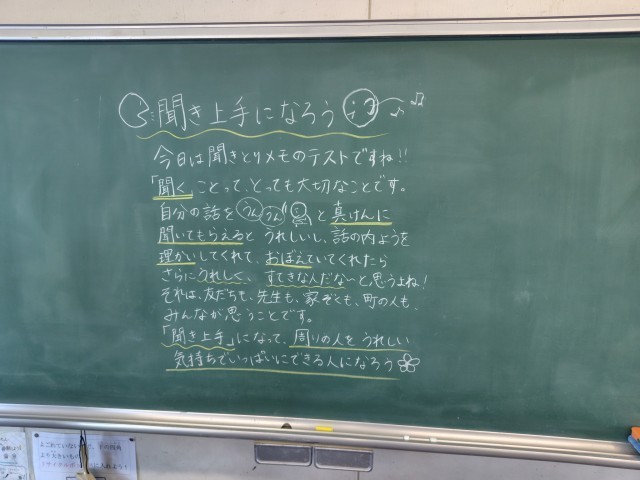 聞き上手になろう
今日は聞きとりメモのテストですね!!
「聞く」ことって、とっても大切なことです。
自分の話を うん うん と真けんに
聞いてもらえると うれしいし、話の内ようを
理かいしてくれて、おぼえていてくれたら
さらにうれしく、すてきな人だな〜と思うよね!
それは、友だちも、先生も、家ぞくも、町の人も、
みんなが思うことです。
「聞き上手」になって、周りの人を うれしい
気持ちでいっぱいにできる人になろう
よごれていない